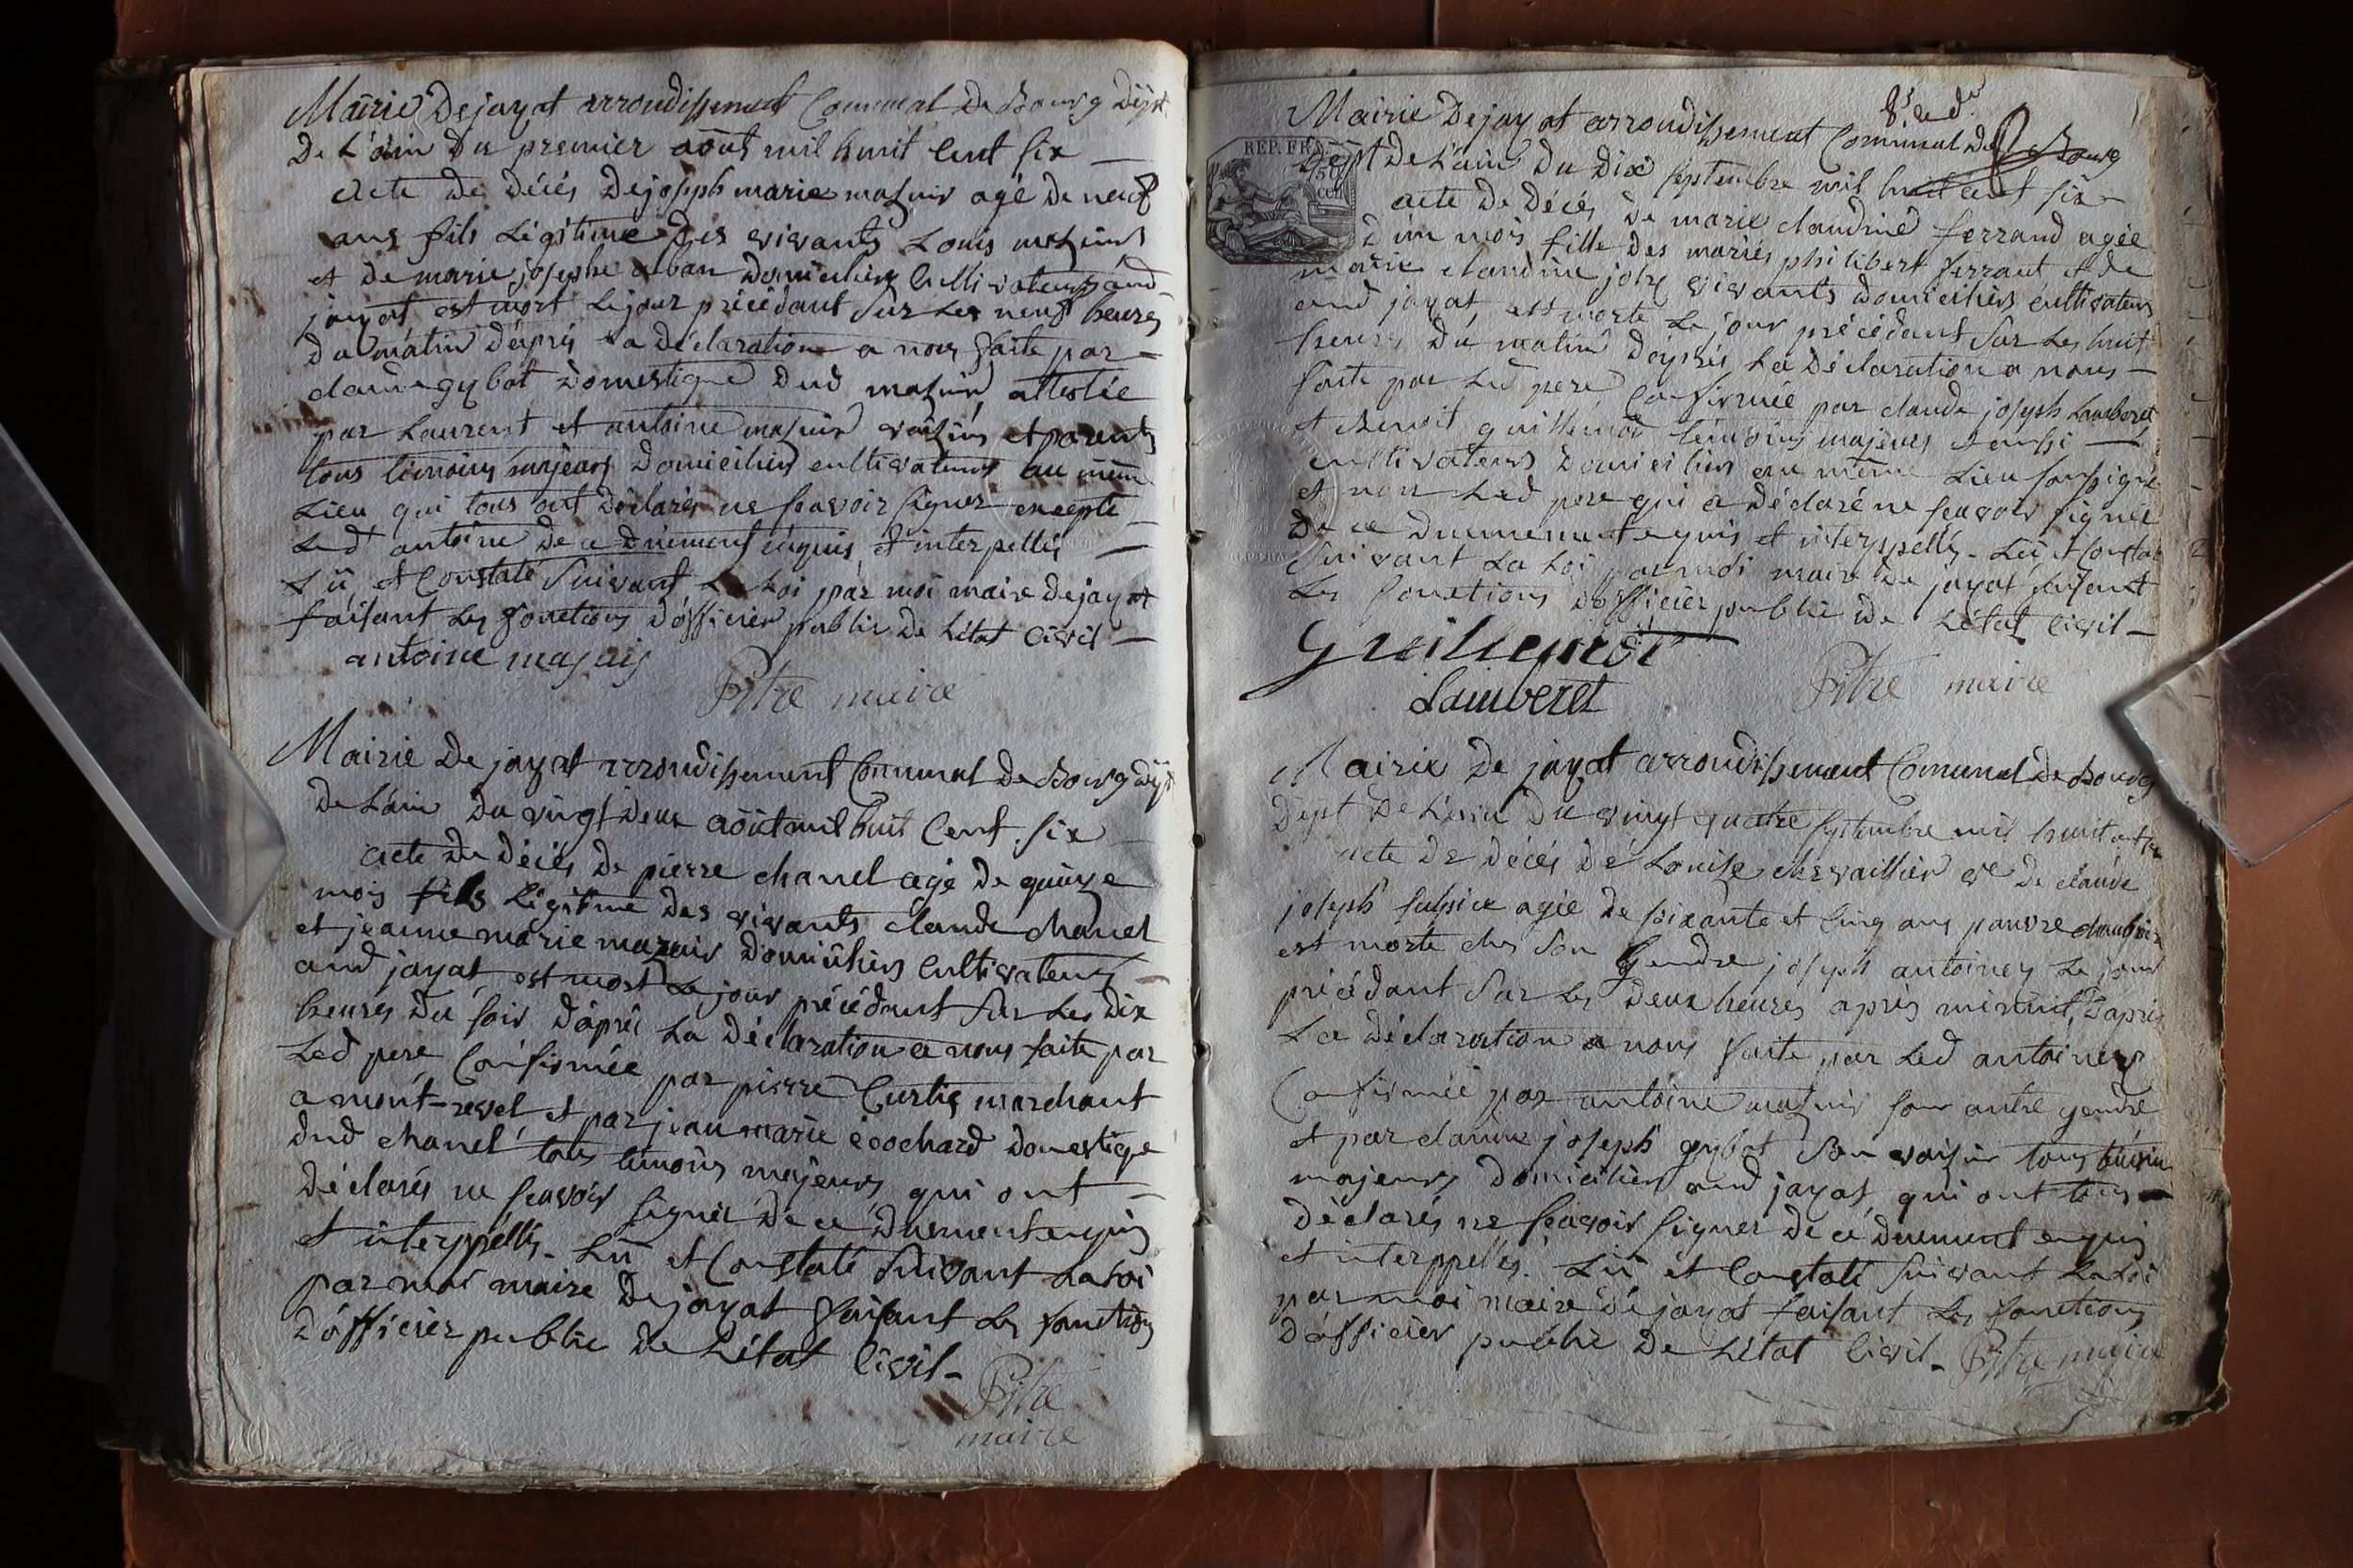 Mairie De jayat arrondissement Communal de Bourg Dépt
De L'ain Du premier août mil huit Cent six
acte De Décés De joseph marie mazuir agé De neuf
ans fils Légitime Des vivants Louis mazuir
et De marie josephe alban Domiciliés Cultivateurs aud
jayat est mort Le jour précédant Sur Les neuf heures
Du matin D'après La Déclaration a nous faite par
claude gybot Domestique Dud mazuir, attestée
par Laurent et antoine mazuir voisins et parents
tous témoins majeurs Domiciliés cultivateurs au même
Lieu qui tous ont Déclarés ne sçavoir signer excepté
Led antoine De ce Duement enquis et interpellés
Lû et Constaté Suivant La Loi par moi maire De jayat
faisant Les fonctions D'officier public De L'état Civil
antoine masuis
Pitre maire
Mairie De jayat arrondissement Communal De Bourg Dépt
De L'ain Du vingt Deux août mil huit Cent six
acte De Décés De pierre chanel agé De quinze
mois fils Légitime Des vivants claude chanel
et jeanne marie mazuir Domiciliés Cultivateurs
aud jayat, est mort Le jour précédant Sur Les Dix
heures Du soir D'après La Déclaration a nous faite par
Led pere Confirmée par pierre Curtis marchant
a mont-revel, et par jean marie écochard Domestique
Dud chanel tous témoins majeurs, qui ont
Déclarés ne sçavoir signer De ce Duement enquis
et interppellés. Lû et Constaté Suivant La Loi
par moi maire De jayat faisant Les fonctions
D'officier public De L'état Civil
Pitre
maire
Mairie De jayat arrondissement Communal De Bourg
REP. FRA
50
cen
Dépt De L'ain Du Dix septembre mil huit cent six
acte De Décés De marie claudine ferrand agée
D'un mois fille Des mariés philibert ferrand et De
marie claudine joly vivants Domiciliés cultivateurs
aud jayat, est morte Le jour précédant Sur Les huit
heures Du matin D'après La Déclaration a nous
faite par Led pere, Confirmée par claude joseph Lamberet
et Benoit guillemot témoins majeurs et aussi
cultivateurs Domiciliés au même Lieu soussignés
et non Led pere qui a Déclaré ne sçavoir signer
De ce Duement enquis et interppellés. Lû et Constaté
Suivant La Loi par moi maire De jayat faisant
Les fonctions D'officier public De L'état Civil
Guillemot
Lamberet
Pitre maire
Mairie De jayat arrondissement Comunal De Bourg
Dépt De L'ain Du vingt quatre septembre mil huit cent six
acte De Décés De Louise chevaillier ve De claude
joseph agée De soixante et Cinq ans pauvre
est morte ches Son Gendre joseph antoiney Le jour
précédant Sur Les Deux heures après minuit, D'après
La Déclaration a nous faite par Led antoiney
Confirmée par antoine mazuir son autre gendre
et par claude joseph gybot Son voisin tous témoins
majeurs Domiciliés aud jayat qui ont tous
Déclarés ne sçavoir signer De ce Duement enquis
et interppellés. Lû et Constaté Suivant La Loi
par moi maire De jayat faisant Les fonctions
D'officier public De L'état Civil
Pitre maire